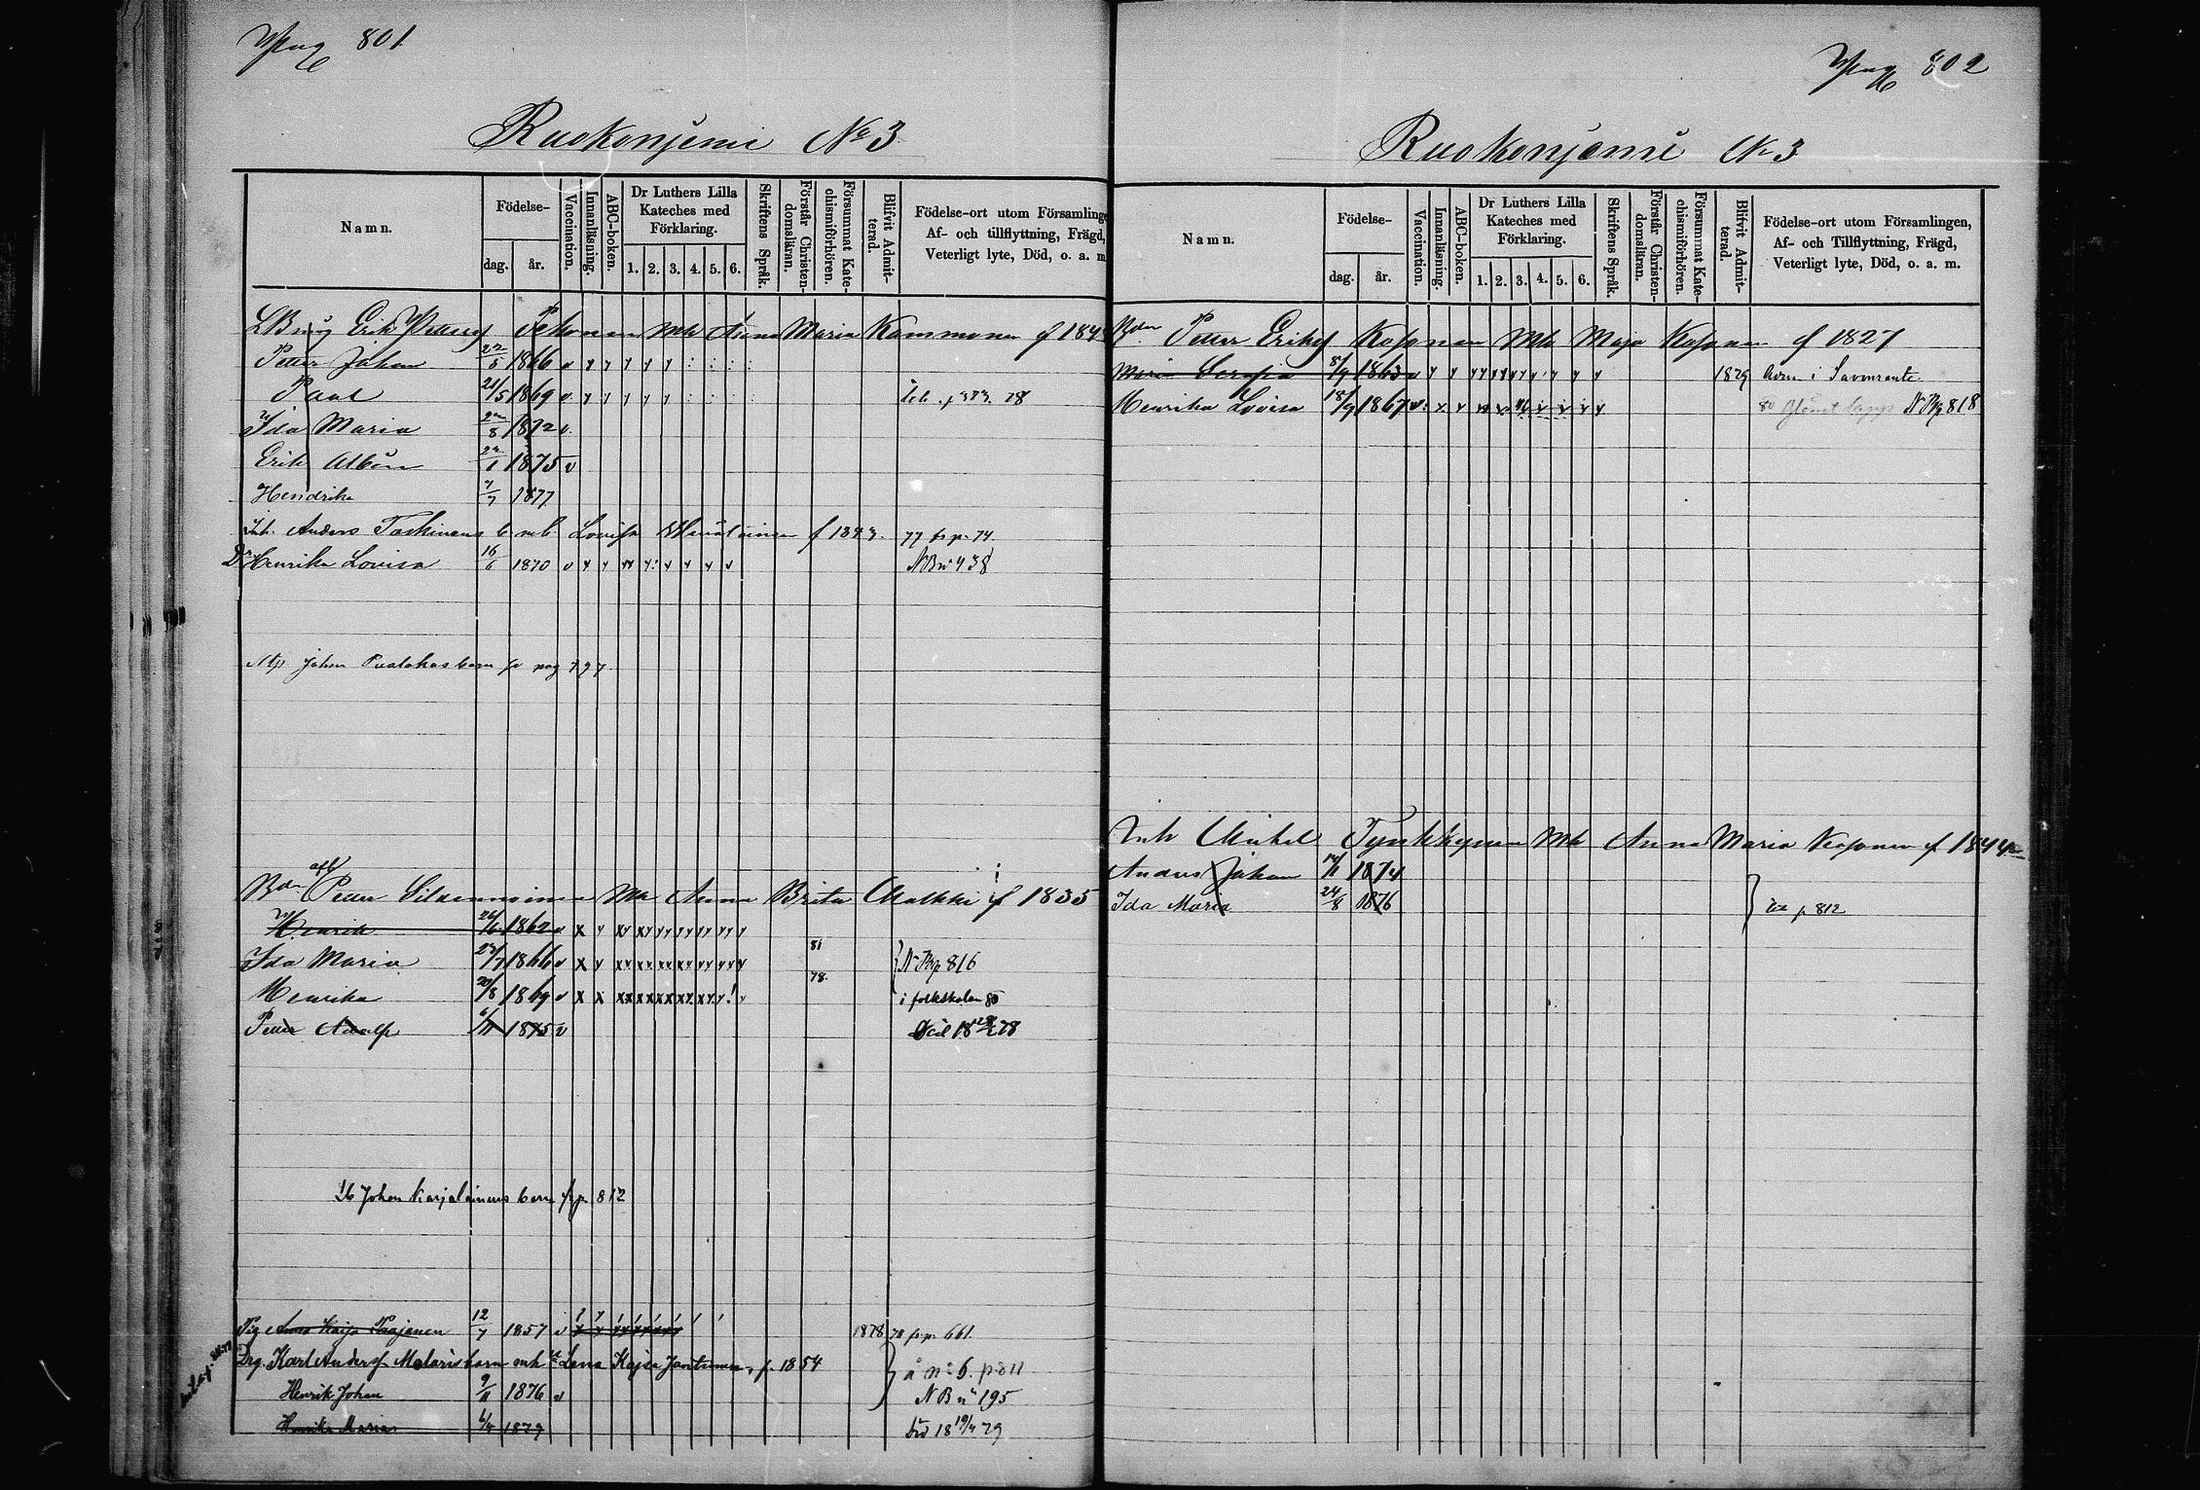 pag 801
Ruokonjemi No 3
Namn.
Födelse-
dag.
år.
Vaccination.
Innanläsning.
ABC-boken.
Dr Luthers Lilla
Kateches med
Förklaring.
1. 2. 3. 4. 5. 6.
Skriftens Språk.
Förstår Christen-
domsläran.
Försummat Kate-
chismiförhören.
Blifvit Admit-
terad.
Födelse-ort utom Församlinge
Af- och tillflyttning, Frägd,
Veterligt lyte, Död, o. a. m
Erik Petters Mh Anna Maria Kammonen f 184
Petter Johan 22/5 1866 v
Paul 21/5 1869 v 78
Ida Maria 1872 v
Erik Albin 1875 v
Hendrika 7/7 1877
Inh. Anders Taskinens b mh Lovisa f 1843. 77 fr p. 74.
Dr Henrika Lovisa 16/6 1870 v NB 438
Johan Puolakas barn fr pag 797
Bdn Petter Mh Anna Brita Malkki f 1835
Henrik 1862 v
Ida Maria 27/7 1866 v 81 N Bp 816
Henrika 20/8 1869 v 78. i folkskolan 80
Petter Adolf 1875 v 78
Johan Karjalainens barn fr p 812
Pig Anna Kaisa Paajanen 12/7 1857 v 1878 78 fr p. 661
Drg. Karl Anders Molaris barn mh Lena Kajsa Jantunen, f. 1854 å no 6. p. 811
Henrik Johan 9/11 1876 v NB 195
Henrika Maria 6/4 1879 död 18 19/4 79
pag 802
Ruokonjemi No 3
Namn.
Födelse-
dag.
år.
Vaccination.
Innanläsning.
ABC-boken.
Dr Luthers Lilla
Kateches med
Förklaring.
1. 2. 3. 4. 5. 6.
Skriftens Språk.
Förstår Christen-
domsläran.
Försummat Kate-
chismiförhören.
Blifvit Admit-
terad.
Födelse-ort utom Församlingen,
Af- och Tillflyttning, Frägd,
Veterligt lyte, Död, o. a. m.
Bdn Petter Eriks Kosonen Mh Maja Kosonen f 1827
Maria Serafia 8/9 1863 v 1879 i Savonranta
Henrika Lovisa 18/9 1867 v 80 N Bp 818
Inh Mikel Tynkkynen Mh Anna Maria Kosonen f 1844
Anders Johan 1874
Ida Maria 24/8 1876 p 812